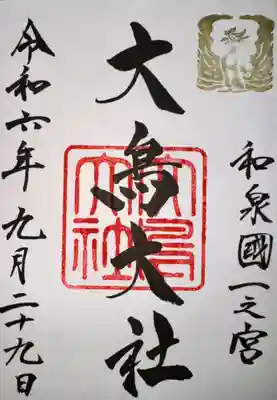 和泉國一之宮
大鳥大社
大鳥大社
令和六年九月二十九日